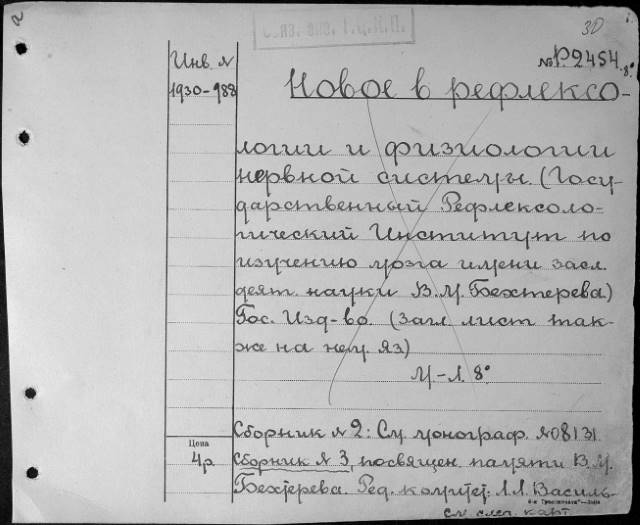 30
№Р.2454.8°
Инв. №
1930-988
Новое в рефлексо-
логии и физиологии
нервной системы. (Госу-
дарственный Рефлексоло-
гический Институт по
изучению мозга имени засл.
деят. науки В.М. Бехтерева)
Гос. Изд-во. (Загл. лист так-
же на нем. яз)
М.-Л. 8°
Сборник №2: См. монограф. №08131.
Цена
4р.
Сборник №3, посвящен. памяти В.М.
Бехтерева. Ред. комитет: Л.Л. Василь-
см. след. карт